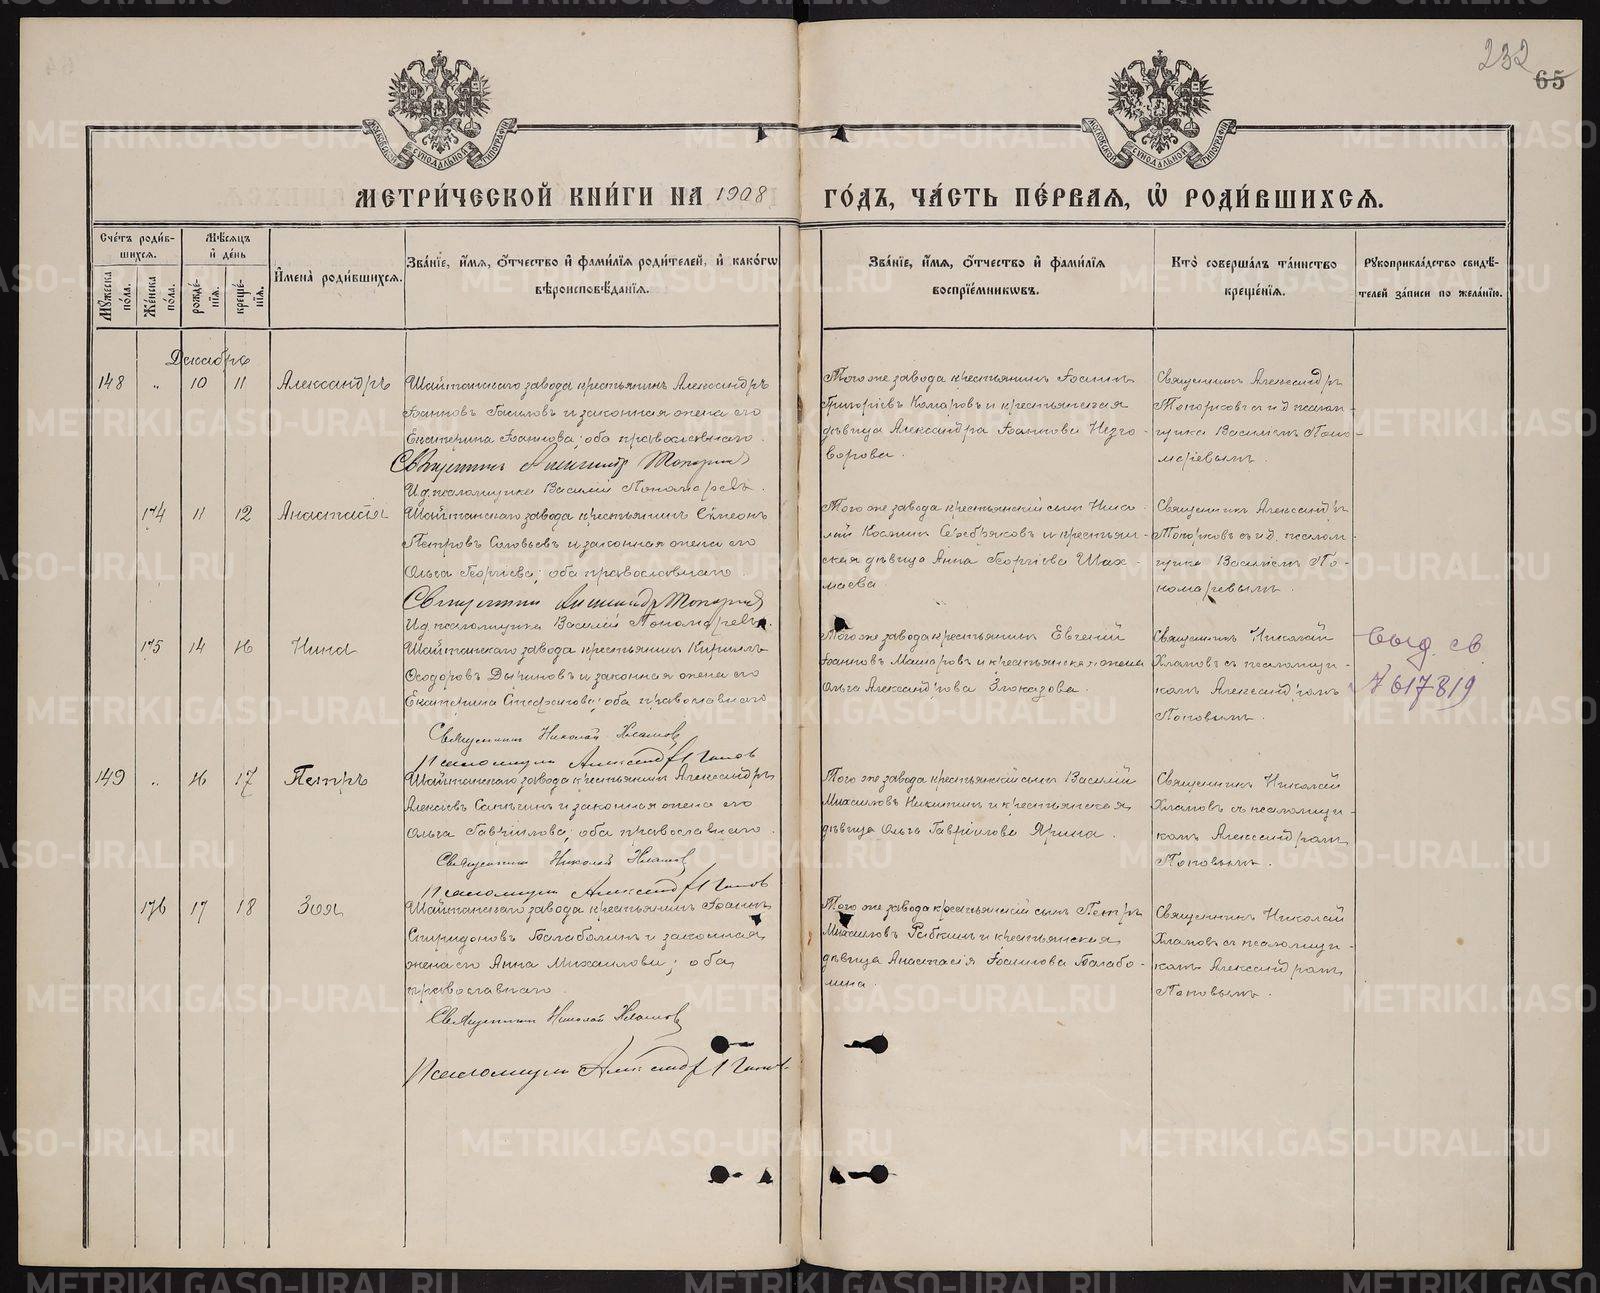 232
65
МОСКОВСКОЙ СѴНОДАЛЬНОЙ ТИПОГРАФІИ
МОСКОВСКОЙ СѴНОДАЛЬНОЙ ТИПОГРАФІИ
МЕТРИ́ЧЕСКОЙ КНИ́ГИ НА 1908 ГО́ДЪ, ЧА́СТЬ ПЕ́РВАЯ, Ѡ҆ РОДИ́ВШИХСѦ.
Сче́тъ роди́в-
шихсѧ.
Мꙋ́жеска по́ла.
Же́нска по́ла.
Мѣ́сѧцъ и҆ де́нь
рожде́-
нїѧ.
креще́-
нїѧ.
И҆мена̀ роди́вшихсѧ.
Зва́нїе, и҆́мѧ, ѻ҆́тчество и҆ фами́лїѧ роди́телей, и҆ како́гѡ
вѣроисповѣ́данїѧ.
Зва́нїе, и҆́мѧ, ѻ҆́тчество и҆ фами́лїѧ
воспрїе́мникѡвъ.
Кто̀ соверша́лъ та́инство
креще́нїѧ.
Рꙋкоприкла́дство свидѣ́-
телей за́писи по жела́нїю.
Декабрь
148 „ 10 11 Александръ
Шайтанскаго завода крестьянинъ Александръ
Іоанновъ и законная жена его
Екатерина Іоаннова; оба православнаго.
Священникъ Александръ Топорковъ
И.д. псаломщика Василій Пономаревъ.
Того же завода крестьянинъ Іоаннъ
Григоріевъ Комаровъ и крестьянская
дѣвица Александра Іоаннова Незго-
ворова.
Священникъ Александръ
Топорковъ съ и.д. псалом-
щика Василіемъ Поно-
маревымъ.
174 11 12 Анастасія
Шайтанскаго завода крестьянинъ Сѵмеонъ
Петровъ Соловьевъ и законная жена его
Ольга Георгіева; оба православнаго.
Священникъ Александръ Топорковъ
И.д. псаломщика Василій Пономаревъ.
Того же завода крестьянскій сынъ Нико-
лай Косминъ Серебряковъ и крестьян-
ская дѣвица Анна Георгіева Шах-
маева.
Священникъ Александръ
Топорковъ съ и.д. псалом-
щика Василіемъ По-
номаревымъ.
175 14 16 Нина
Шайтанскаго завода крестьянинъ Кириллъ
Ѳеодоровъ и законная жена его
Екатерина Стефанова; оба православнаго
Священникъ Николай Хламовъ
Псаломщикъ Александръ Поповъ
Того же завода крестьянинъ Евгеній
Іоанновъ Макаровъ и крестьянская жена
Ольга Александрова Злоказова.
Священникъ Николай
Хламовъ съ псаломщи-
комъ Александромъ
Поповымъ.
выд. св.
№ 617819
149 „ 16 17 Петръ
Шайтанскаго завода крестьянинъ Александръ
Алексѣевъ и законная жена его
Ольга Гавріилова; оба православнаго.
Священникъ Николай Хламовъ
Псаломщикъ Александръ Поповъ
Того же завода крестьянскій сынъ Василій
Михаиловъ Никитинъ и крестьянская
дѣвица Ольга Гавріилова Ярина.
Священникъ Николай
Хламовъ съ псаломщи-
комъ Александромъ
Поповымъ.
176 17 18 Зоя
Шайтанскаго завода крестьянинъ Іоаннъ
Спиридоновъ Балаболинъ и законная
жена его Анна Михаилова; оба
православнаго.
Священникъ Николай Хламовъ
Псаломщикъ Александръ Поповъ
Того же завода крестьянскій сынъ Петръ
Михаиловъ Рябкинъ и крестьянская
дѣвица Анастасія Іоаннова Балабо-
лина.
Священникъ Николай
Хламовъ съ псаломщи-
комъ Александромъ
Поповымъ.
METRIKI.GASO-URAL.RU